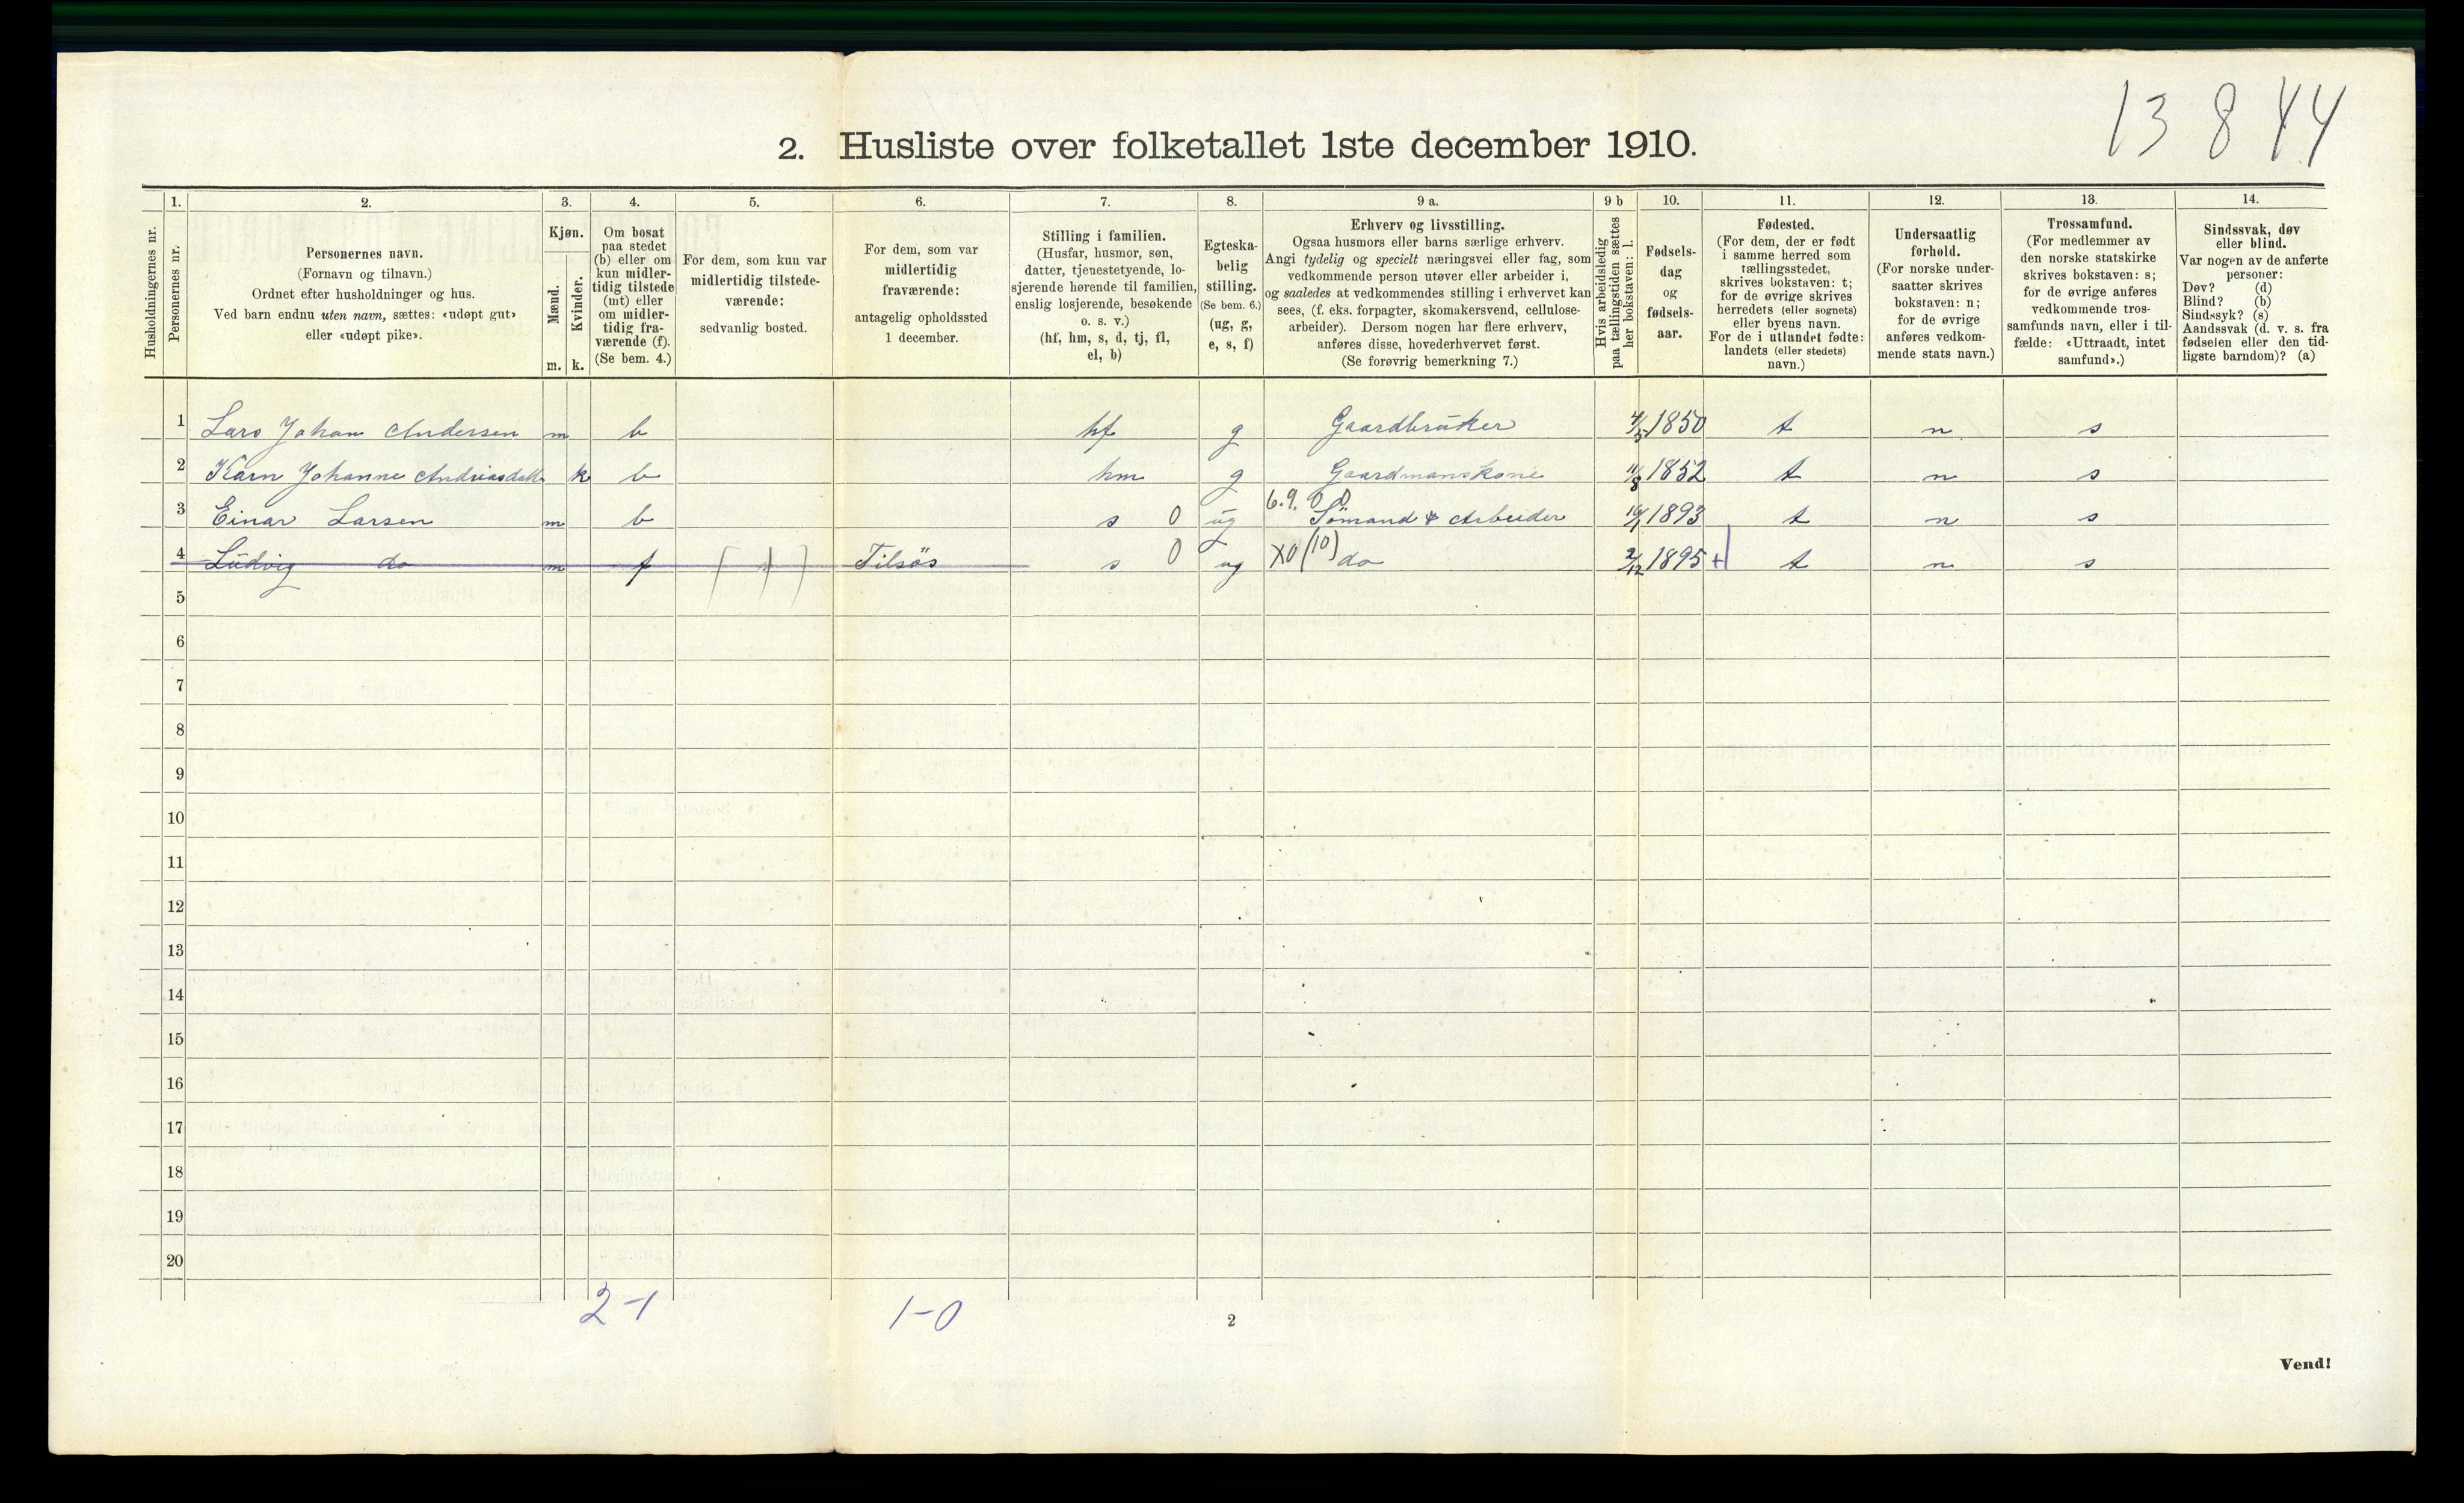 13 8 44
2. Husliste over folketallet 1ste december 1910.
Husholdningernes nr.
1.
Personernes nr.
2.
Personernes navn.
(Fornavn og tilnavn.)
Ordnet efter husholdninger og hus.
Ved barn endnu uten navn, sættes: «udøpt gut»
eller «udøpt pike».
3.
Kjøn.
Mænd.
Kvinder.
m. k.
4.
Om bosat
paa stedet
(b) eller om
kun midler-
tidig tilstede
(mt) eller
om midler-
tidig fra-
værende (f).
(Se bem. 4.)
5.
For dem, som kun var
midlertidig tilstede-
værende:
sedvanlig bosted.
6.
For dem, som var
midlertidig
fraværende:
antagelig opholdssted
1 december.
7.
Stilling i familien.
(Husfar, husmor, søn,
datter, tjenestetyende, lo-
sjerende hørende til familien,
enslig losjerende, besøkende
o. s. v.)
(hf, hm, s, d, tj, fl,
el, b)
8.
Egteska-
belig
stilling.
(Se bem. 6.)
(ug, g,
e, s, f)
9 a.
Erhverv og livsstilling.
Ogsaa husmors eller barns særlige erhverv.
Angi tydelig og specielt næringsvei eller fag, som
vedkommende person utøver eller arbeider i,
og saaledes at vedkommendes stilling i erhvervet kan
sees, (f. eks. forpagter, skomakersvend, cellulose-
arbeider). Dersom nogen har flere erhverv,
anføres disse, hovederhvervet først.
(Se forøvrig bemerkning 7.)
9 b
Hvis arbeidsledig
paa tællingstiden sættes
her bokstaven: l.
10.
Fødsels-
dag
og
fødsels-
aar.
11.
Fødested.
(For dem, der er født
i samme herred som
tællingsstedet,
skrives bokstaven: t;
for de øvrige skrives
herredets (eller sognets)
eller byens navn.
For de i utlandet fødte:
landets (eller stedets)
navn.)
12.
Undersaatlig
forhold.
(For norske under-
saatter skrives
bokstaven: n;
for de øvrige
anføres vedkom-
mende stats navn.)
13.
Trossamfund.
(For medlemmer av
den norske statskirke
skrives bokstaven: s;
for de øvrige anføres
vedkommende tros-
samfunds navn, eller i til-
fælde: «Uttraadt, intet
samfund».)
14.
Sindssvak, døv
eller blind.
Var nogen av de anførte
personer:
Døv? (d)
Blind? (b)
Sindssyk? (s)
Aandssvak (d. v. s. fra
fødselen eller den tid-
ligste barndom)? (a)
1 Lars Johan Andersen m b hf g Gaardbruker 4/5 1850 t n s
2 Karn Johanne k b hm g Gaardmanskone 11/8 1852 t n s
6.9. 0 0
3 Einar Larsen m b s 0 ug Sömand & Arbeider 1893 t n s
4 Ludvig do m f Tilsös s 0 ug X0 (10) do 2/12 1895 + t n s
5
6
7
8
9
10
11
12
13
14
15
16
17
18
19
20
2-1 1-0
2
Vend!